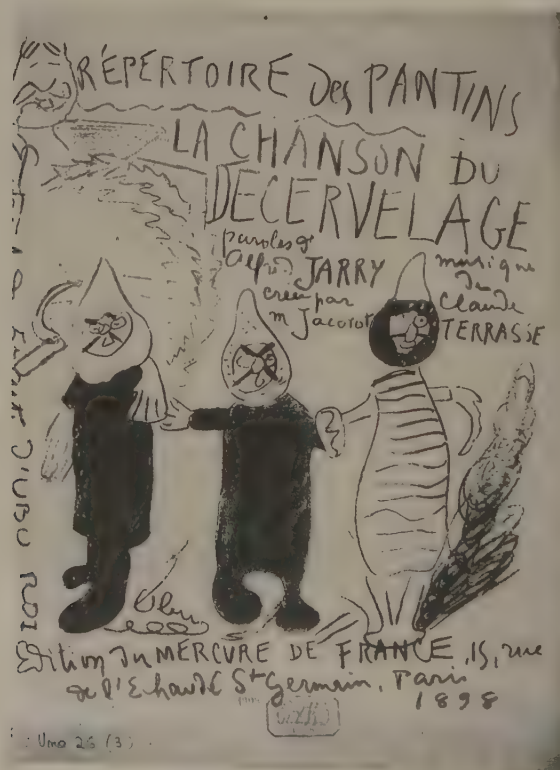 RÉPERTOIRE des PANTINS
LA CHANSON DU
DECERVELAGE
paroles d'
Alfred JARRY
créée par
M Jacotot
musique
de
Claude
TERRASSE
D'UBU ROI
Edition du MERCURE DE FRANCE, 15, rue
de l'Echaudé St Germain, Paris
1898